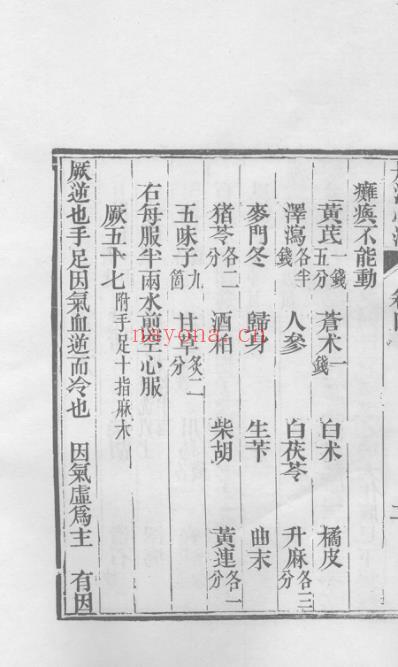 癱瘓不能動
黃茋一錢五分 蒼术一錢 白术 橘皮
澤瀉各半錢 人參 白茯苓 升麻各三分
麥門冬 歸身 生苄 曲末
猪苓各二分 酒柏 柴胡 黃連各一分
五味子九箇 甘草炙二分
右每服半兩水煎空心服
厥五十七附手足十指麻木
厥逆也手足因氣血逆而冷也 因氣虛爲主 有因
nayona.cn